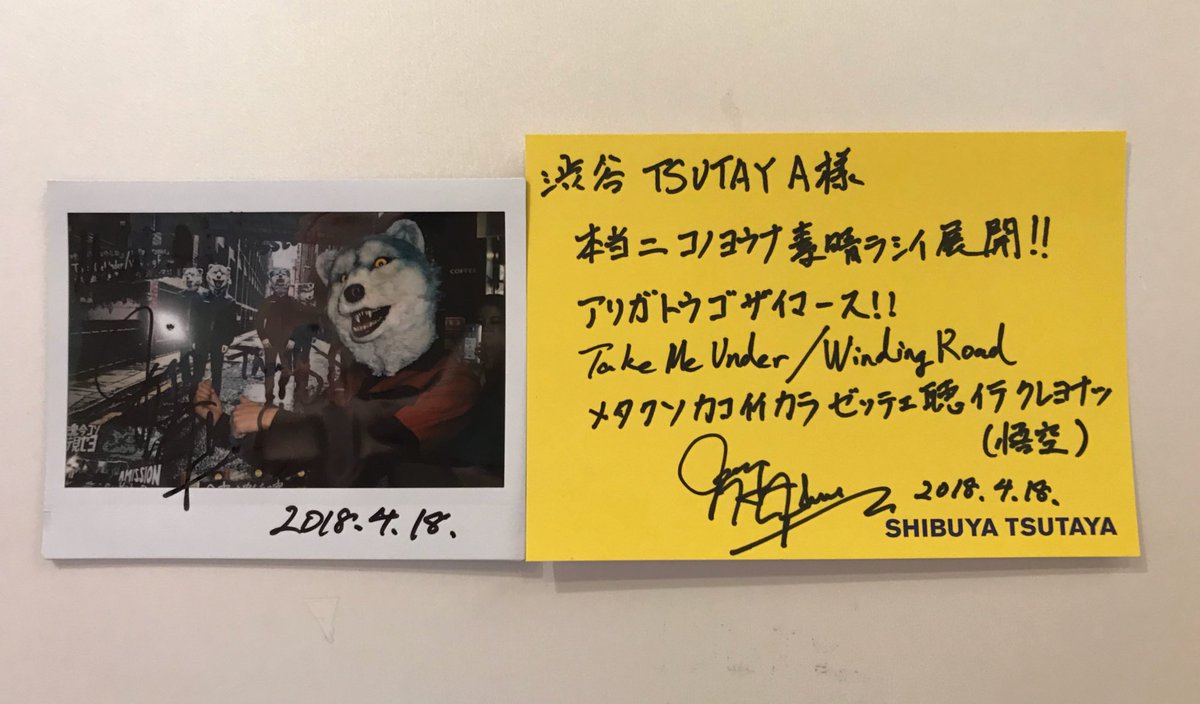 COFFEE
AMISSION
2018.4.18.
渋谷 TSUTAYA様
本当ニ コノヨウナ 素晴ラシイ 展開!!
アリガトウゴザイマース!!
Take Me Under/Winding Road
メタクソカコイイカラ ゼッテェ聴イテクレヨナッ
(悟空)
2018.4.18.
SHIBUYA TSUTAYA